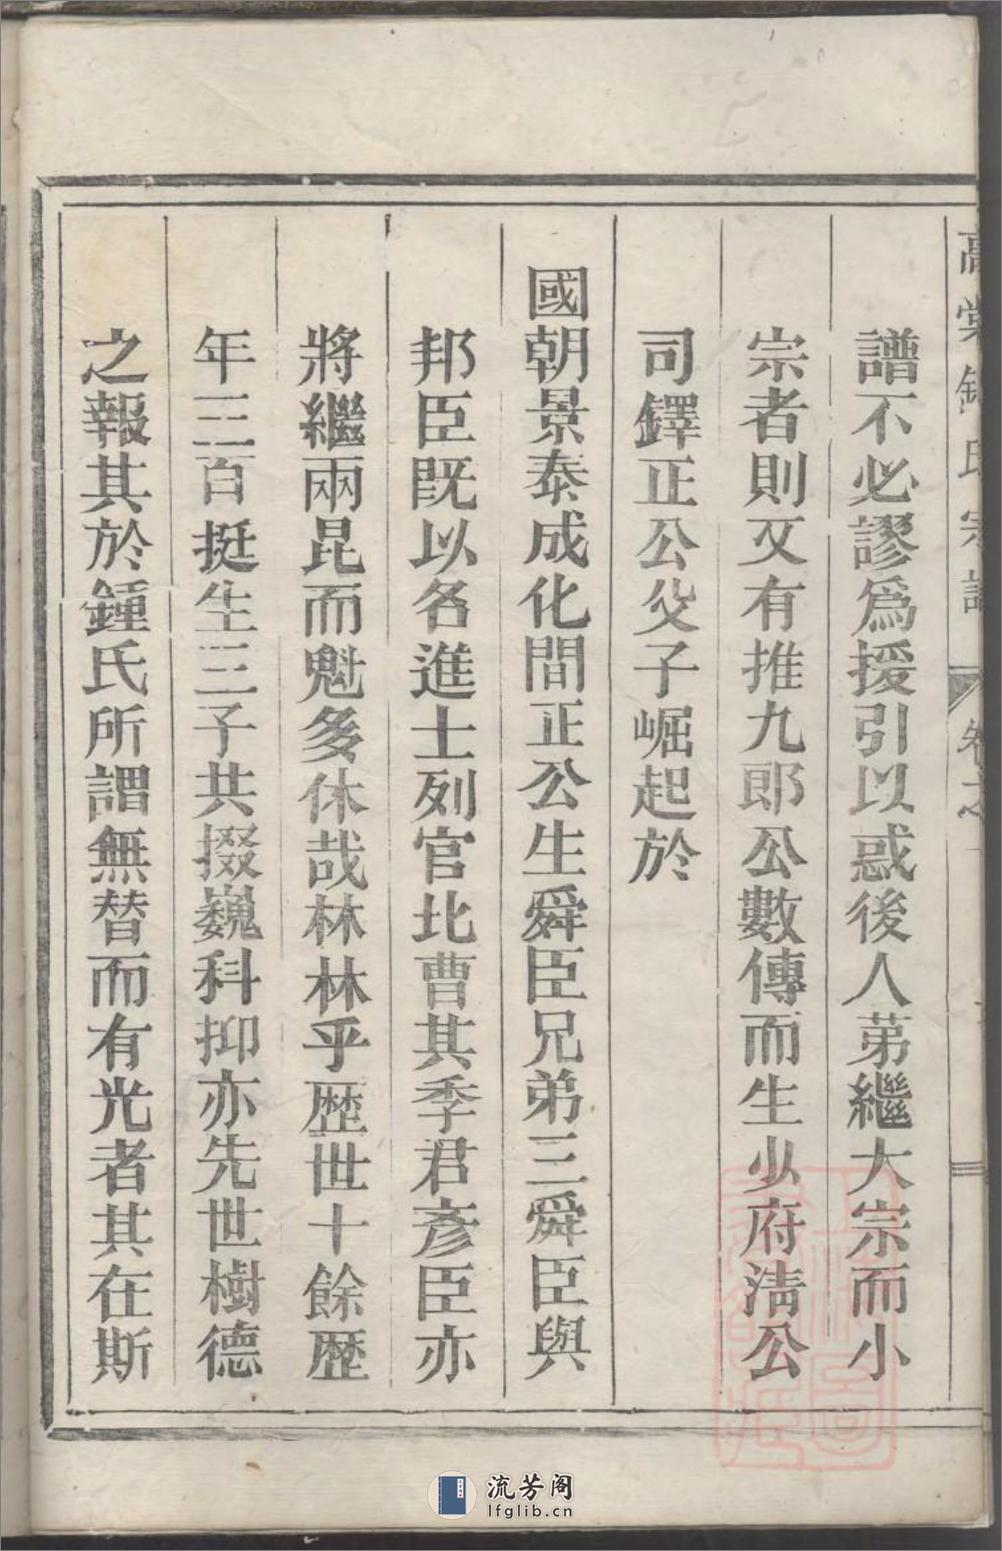 譜不必謬爲援引以惑後人苐繼大宗而小
宗者則又有推九郎公數傳而生少府淸公
司鐸正公父子崛起於
國朝景泰成化間正公生舜臣兄弟三舜臣與
邦臣旣以各進士列官比曹其季君彥臣亦
將繼兩昆而魁多休哉林林乎歴世十餘歴
年三百挺生三子共掇巍科抑亦先世樹德
之報其於鍾氏所謂無替而有光者其在斯
流芳阁
lfglib.cn